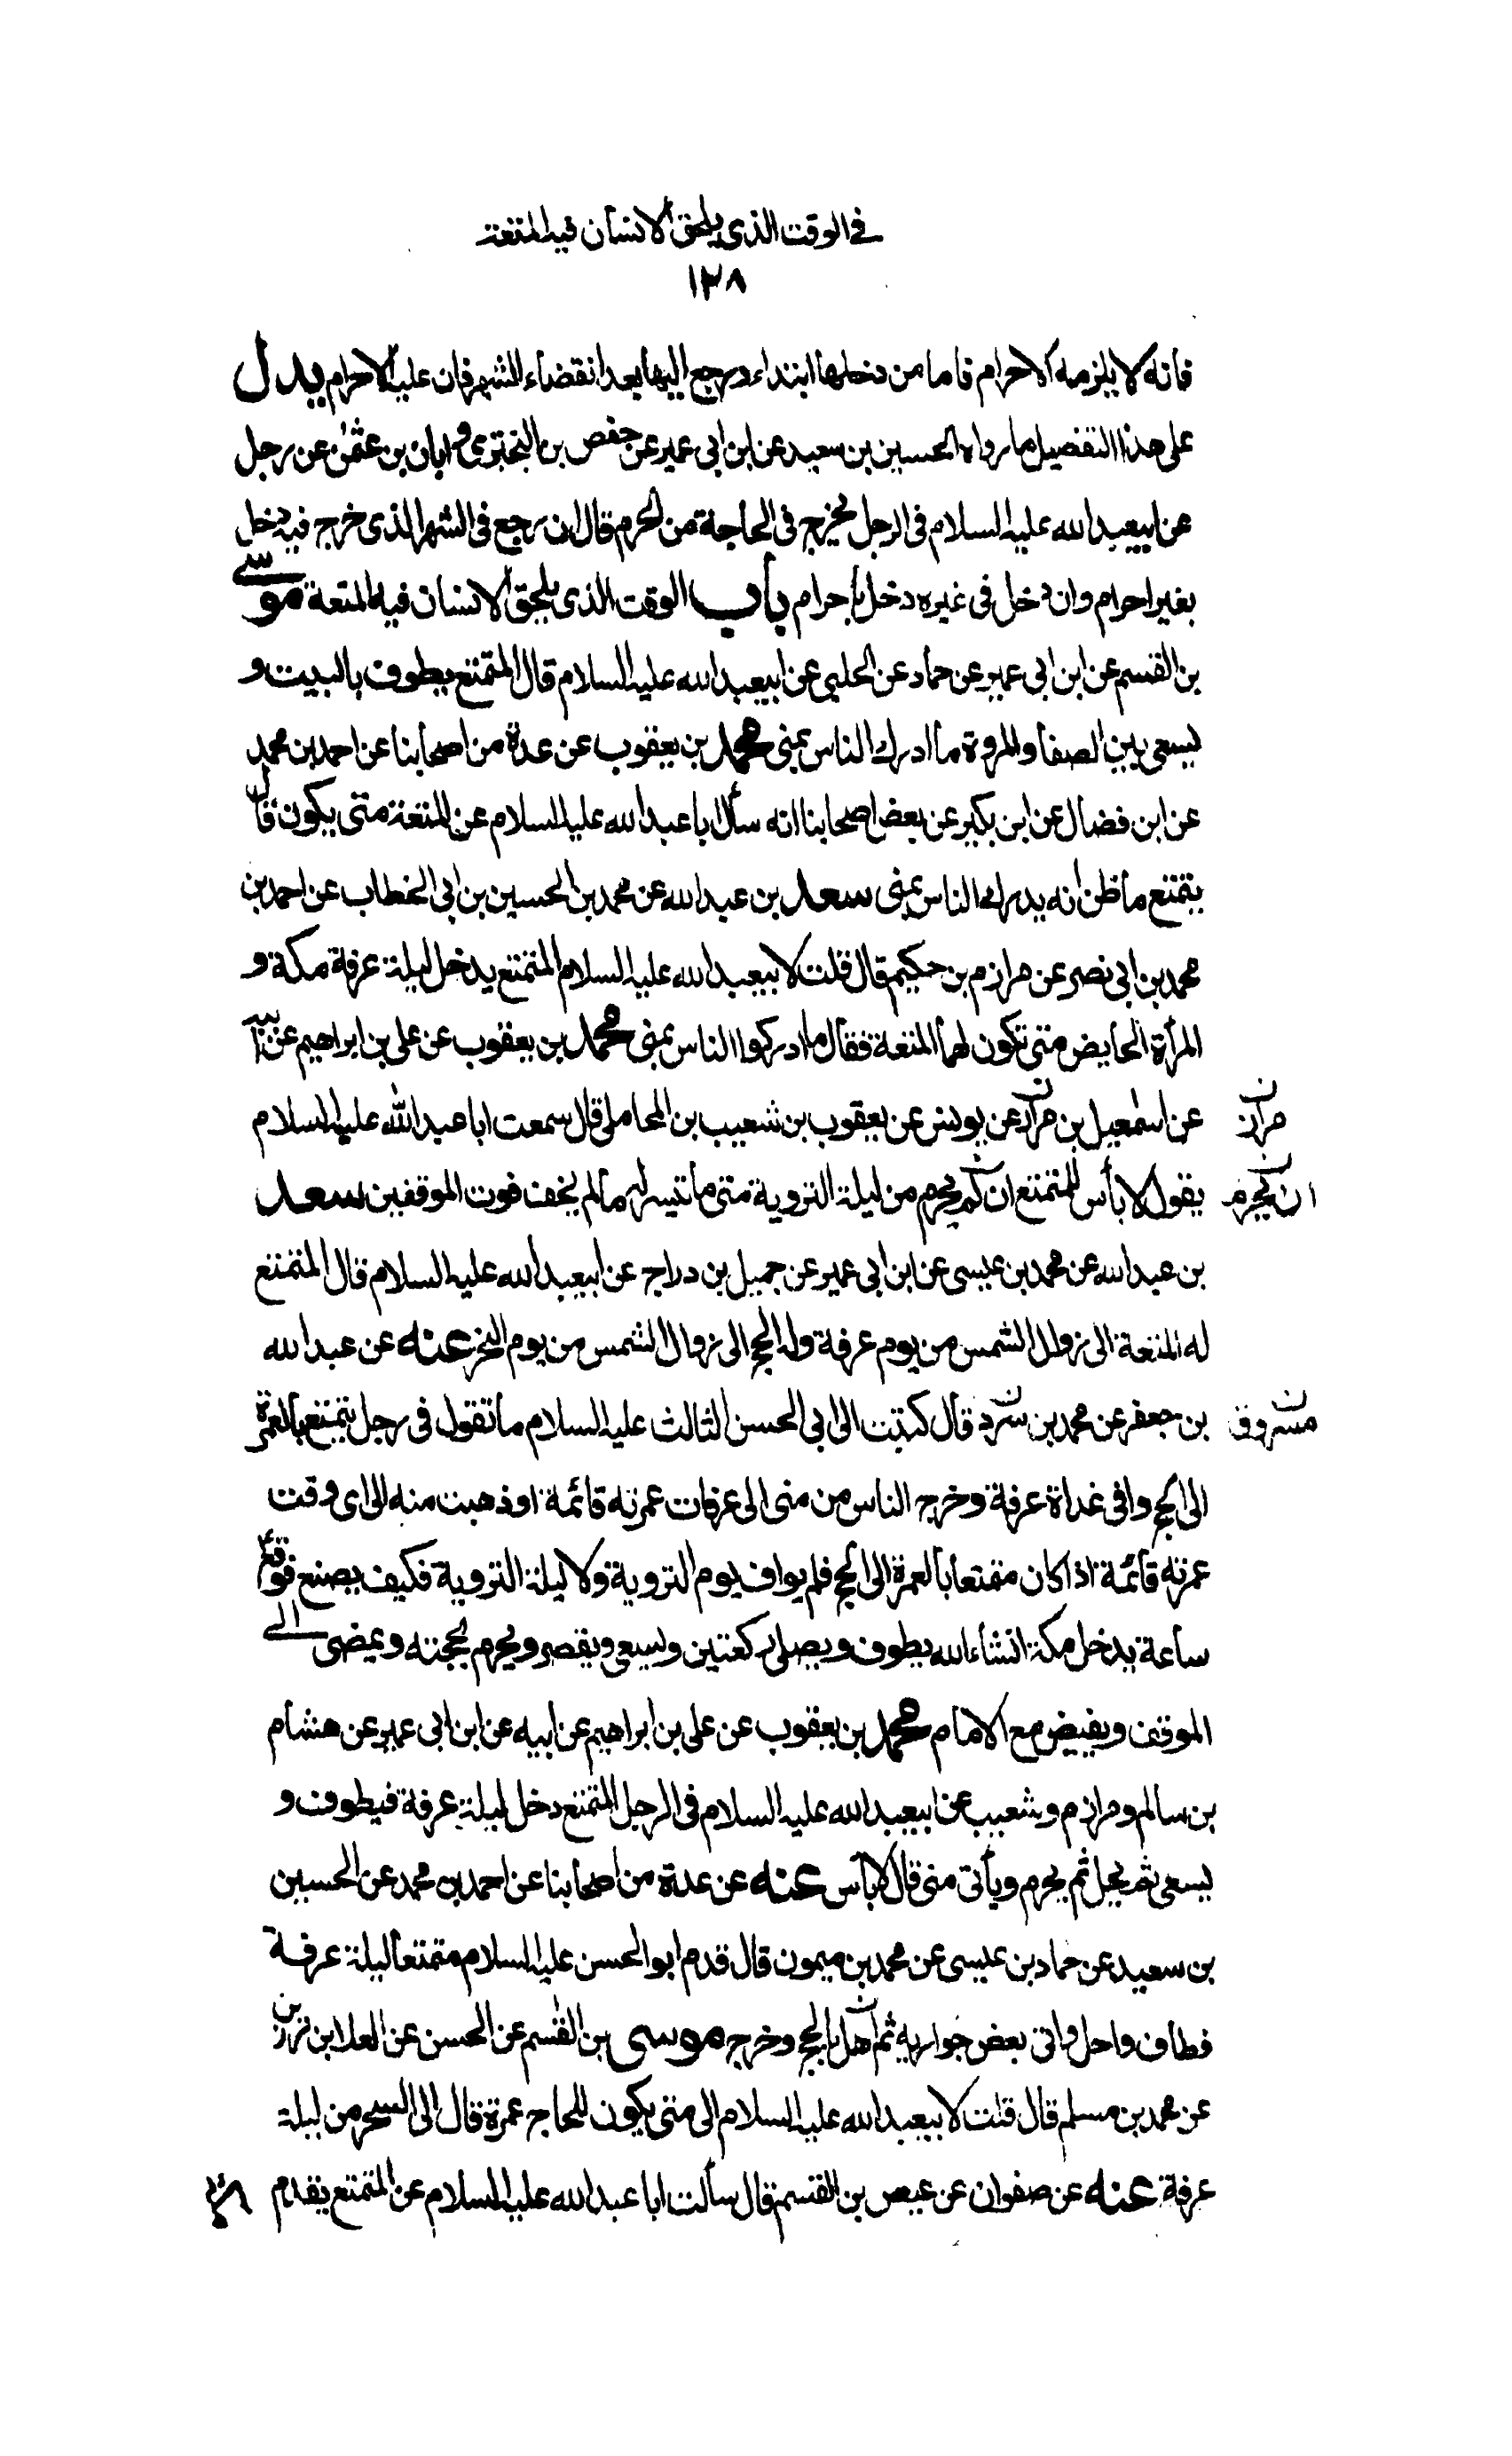 في الوقت الذي يلحق الانسان فيه المتعة
١٢٨
فانه لا يلزمه الاحرام فاما من دخلها ابتداء ورجع اليها بعد انقضاء الشهر فان عليه الاحرام يدل
على هذا التفصيل ما رواه الحسين بن سعيد عن ابن ابي عمير عن حفص بن البختري و ابان بن عثمن عن رجل
عن ابيعبد الله عليه السلام في الرجل يخرج في الحاجة من الحرم قال ان رجع في الشهر الذي خرج فيه دخل
بغير احرام وان دخل في غيره دخل باحرام باب الوقت الذي يلحق الانسان فيه المتعة موسى
بن القسم عن ابن ابي عمير عن حماد عن الحلبي عن ابيعبد الله عليه السلام قال المتمتع يطوف بالبيت و
يسعى بين الصفا والمروة ما ادرك الناس بمنى محمد بن يعقوب عن عدة من اصحابنا عن احمد بن محمد
عن ابن فضال عن ابن بكير عن بعض اصحابنا انه سأل ابا عبد الله عليه السلام عن المتعة متى يكون قال
يتمتع ما ظن انه يدرك الناس بمنى سعد بن عبد الله عن محمد بن الحسين بن ابي الخطاب عن احمد بن
محمد بن ابي نصر عن مرازم بن حكيم قال قلت لابيعبد الله عليه السلام المتمتع يدخل ليلة عرفة مكة و
المرأة الحايض متى تكون لهما المتعة فقال ما ادركوا الناس بمنى محمد بن يعقوب عن علي بن ابراهيم عن ابيه
عن اسمعيل بن مرار عن يونس عن يعقوب بن شعيب بن المحاملي قال سمعت ابا عبد الله عليه السلام
يقول لا بأس للمتمتع ان لم يحرم من ليلة التروية متى ما تيسر له ما لم يخف فوت الموقفين سعد
ان يحرم
بن عبد الله عن محمد بن عيسى عن ابن ابي عمير عن جميل بن دراج عن ابيعبد الله عليه السلام قال المتمتع
له المتعة الى زوال الشمس من يوم عرفة وله الحج الى زوال الشمس من يوم النحر عنه عن عبد الله
بن جعفر عن محمد بن سرد قال كتبت الى ابي الحسن الثالث عليه السلام ما تقول في رجل يتمتع بالعمرة
مسروق
الى الحج وافى غداة عرفة وخرج الناس من منى الى عرفات عمرته قائمة او ذهبت منه الى اي وقت
عمرته قائمة اذا كان متمتعا بالعمرة الى الحج فلم يواف يوم التروية ولا ليلة التروية فكيف يصنع فوقع ع
ساعة يدخل مكة انشاء الله يطوف ويصلى ركعتين ويسعى ويقصر ويحرم بحجته ويمضي الى
الموقف ويفيض مع الامام محمد بن يعقوب عن علي بن ابراهيم عن ابيه عن ابن ابي عمير عن هشام
بن سالم ومرازم وشعيب عن ابيعبد الله عليه السلام في الرجل المتمتع دخل ليلة عرفة فيطوف و
يسعى ثم يحل ثم يحرم ويأتي منى قال لا بأس عنه عن عدة من اصحابنا عن احمد بن محمد عن الحسين
بن سعيد عن حماد بن عيسى عن محمد بن ميمون قال قدم ابو الحسن عليه السلام متمتعا ليلة عرفة
فطاف واحل واتى بعض جواريه ثم اهل بالحج وخرج موسى بن القسم عن الحسن عن العلا بن رزين
عن محمد بن مسلم قال قلت لابيعبد الله عليه السلام الى متى يكون للحاج عمرة قال الى السحر من ليلة
عرفة عنه عن صفوان عن عيص بن القسم قال سألت ابا عبد الله عليه السلام عن المتمتع يقدم